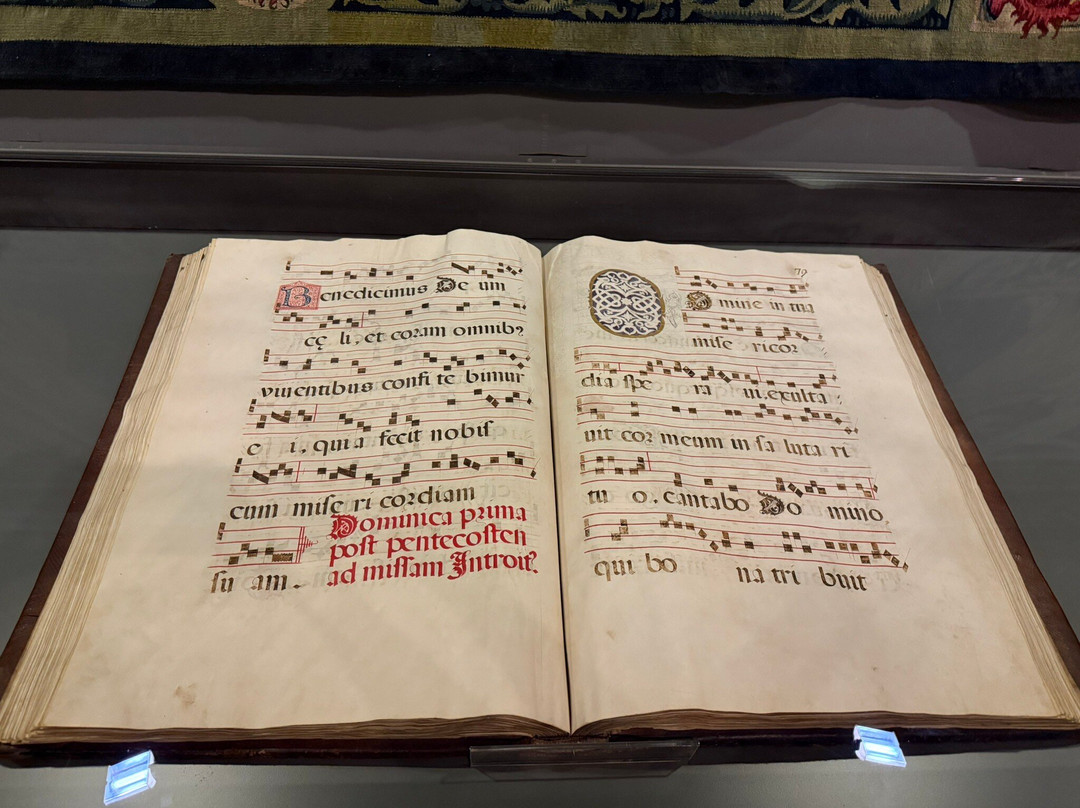 Benedicimus Deum
cę li, et coram omnibꝰ
viventibus confi te bimur
e i, qui a fecit nobis
cum mise ri cordiam
su am.
Dominica prima
post pentecosten
ad missam Introitꝰ
79
Omine in tua
mise ricor
dia spe ra ui. exulta
uit cor meum in sa luta ri
tu o. cantabo Do mino,
qui bo na tri buit